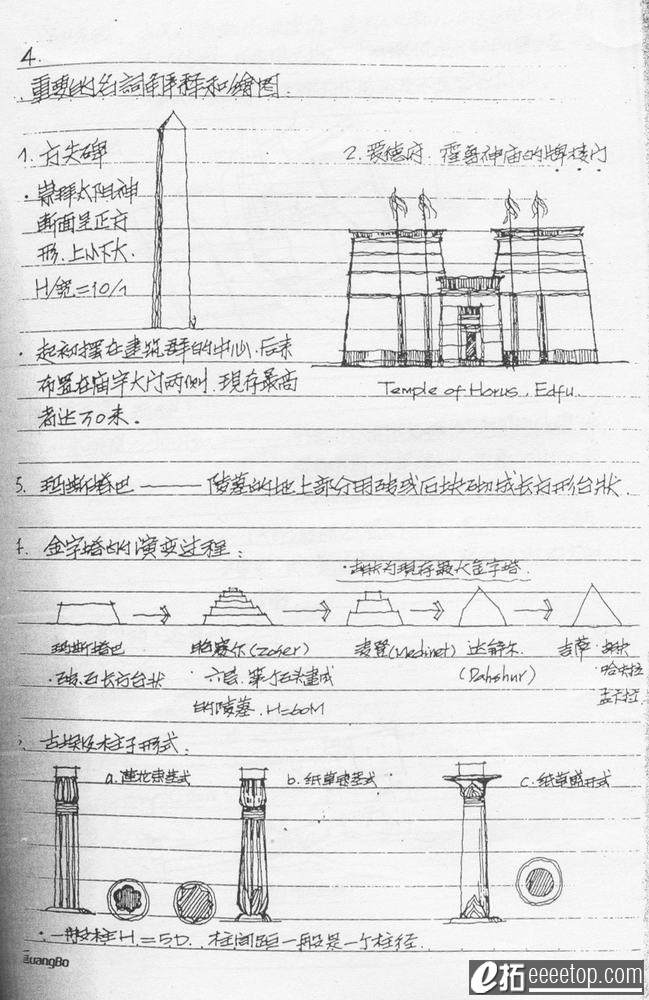 4.
重要的名詞解释和繪图.
1. 方尖碑
·崇拜太阳神
断面呈正方
形.上小下大.
H/宽=10/1
·起初摆在建筑群的中心.后来
布置在庙宇大门两侧.现存最高
者达30米。
2. 爱德府.霍鲁神庙的牌楼门
Temple of Horus, Edfu.
5. 玛斯塔巴——陵墓的地上部分用砖或石块砌成长方形台状.
金字塔的演变过程:
·胡夫为现存最大金字塔.
玛斯塔巴
·砖.石长方台状
(Zoser)
·六层.第一个石头建成
的陵墓.H=60M
麦登(Medinet)
达舒尔
(Dahshur)
吉萨·胡夫
·哈夫拉
孟卡拉
古埃及柱子形式:
a.莲花束茎式
b.纸草束茎式
c.纸草盛开式
·一般柱H=5D.柱间距一般是一个柱径.
GuangBo
e拓 eeeetop.com